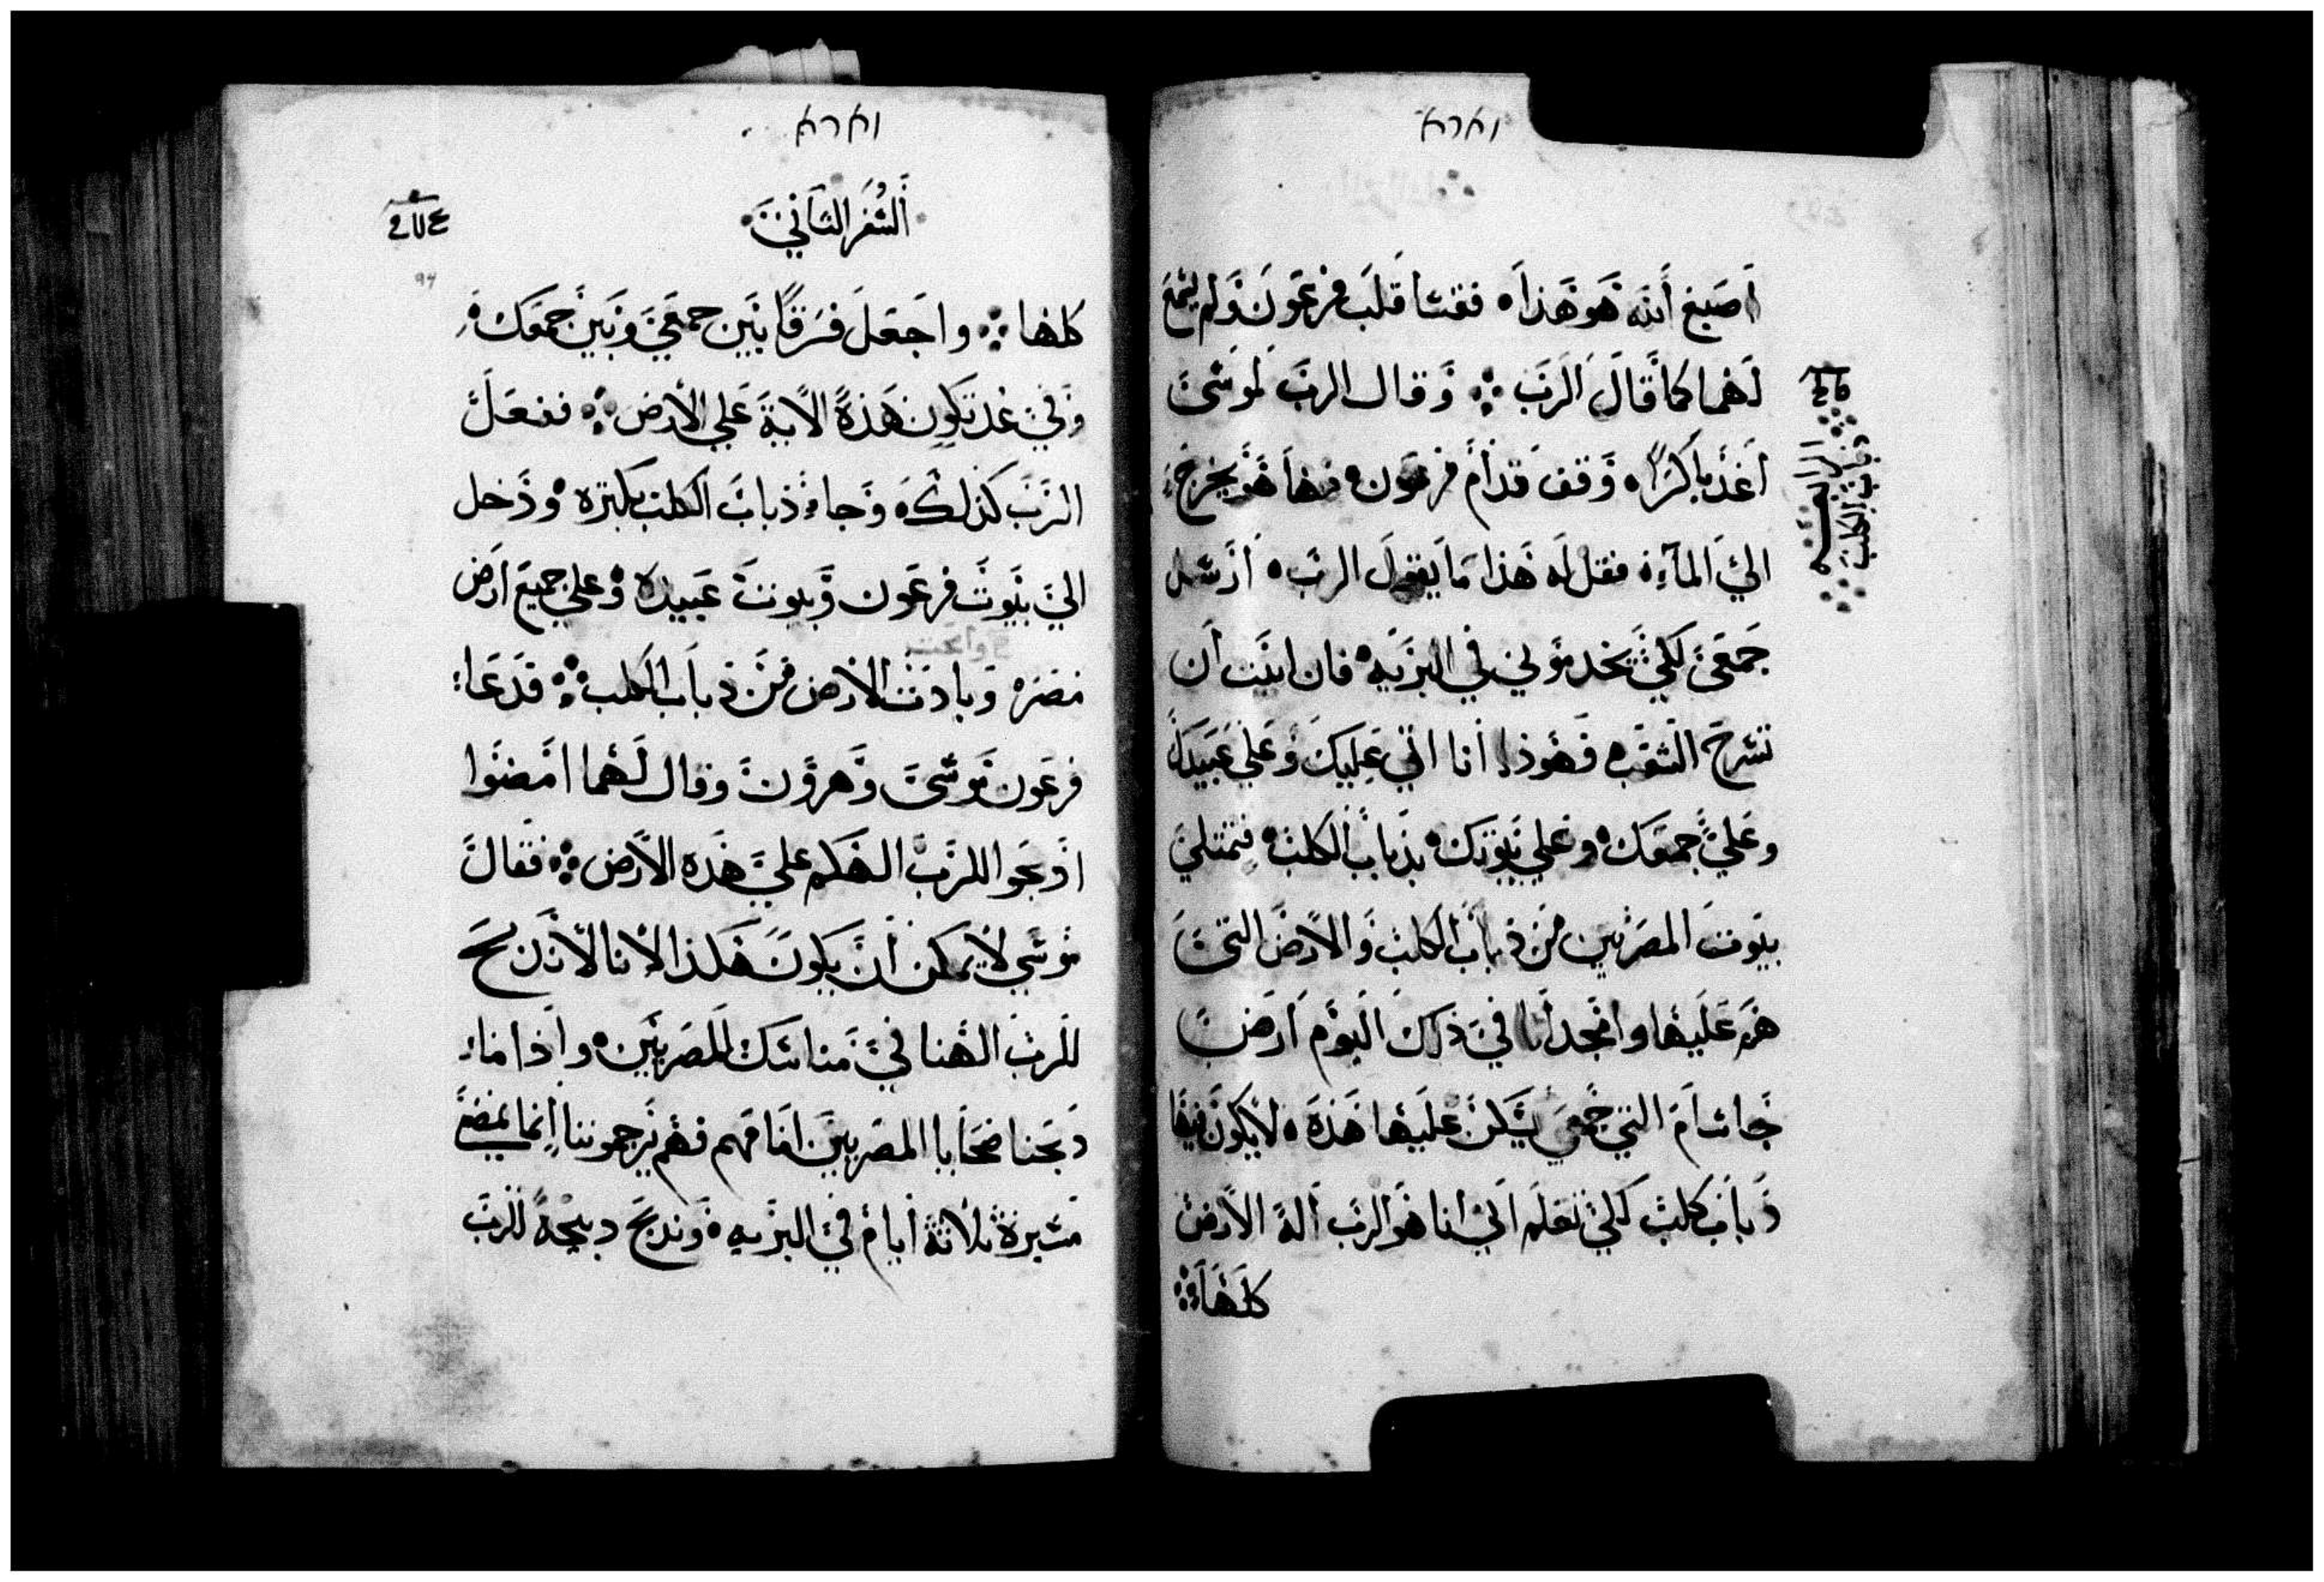 וארא
اصبغ أنّه هو هذا ۰ فقسا قلب فرعون ولم يسمع
لهما كما قال الرب ۰ وقال الرب لموسى
الرابعه
ذباب الكلب
اغد باكرًا ۰ وقف قدام فرعون ۰ فها هو يخرج
الي المآء ۰ فقل له هذا ما يقول الرب ۰ ارسل
جمعى لكي يخدموني في البريه ۰ فان ابيت أن
تسرح الشعب ۰ فهوذا انا اتي عليك وعلي عبيدك
وعلي جمعك ۰ وعلي بيوتك ۰ بذباب الكلب ۰ فتمتلي
بيوت المصريين من ذباب الكلب والارض التي
هم عليها وامجد انا في ذلك اليوم ارض
جاسام التي جمعي يسكن عليها هذه ۰ لا يكون فيها
ذباب كلب لكي تعلم اني انا هو الرب آلة الارض
كلها ۰
וארא
السفر الثاني
94
كلها ۰ واجعل فرقًا بين جمعي وبين جمعك ۰
وفي غد تكون هذه الاية علي الارض ۰ ففعل
الرب كذلك ۰ وجاء ذباب الكلب بكثره ۰ ودخل
الي بيوت فرعون وبيوت عبيده ۰ وعلي جميع ارض
مصر ۰ وبادت الارض من ذباب الكلب ۰ فدعا
فرعون موسى وهرون وقال لهما امضوا
اذبحوا للرب الهكم علي هذه الارض ۰ فقال
موسي لا يمكن ان يكون هكذا الاننا لاندبح
للرب الهنا في مناسك المصريين ۰ واذا ما
دبحنا ضحايا المصريين امامهم فهم يرجموننا انما نمضي
مسيرة ثلاثة أيام في البريه ۰ وندبح دبيحة للرب